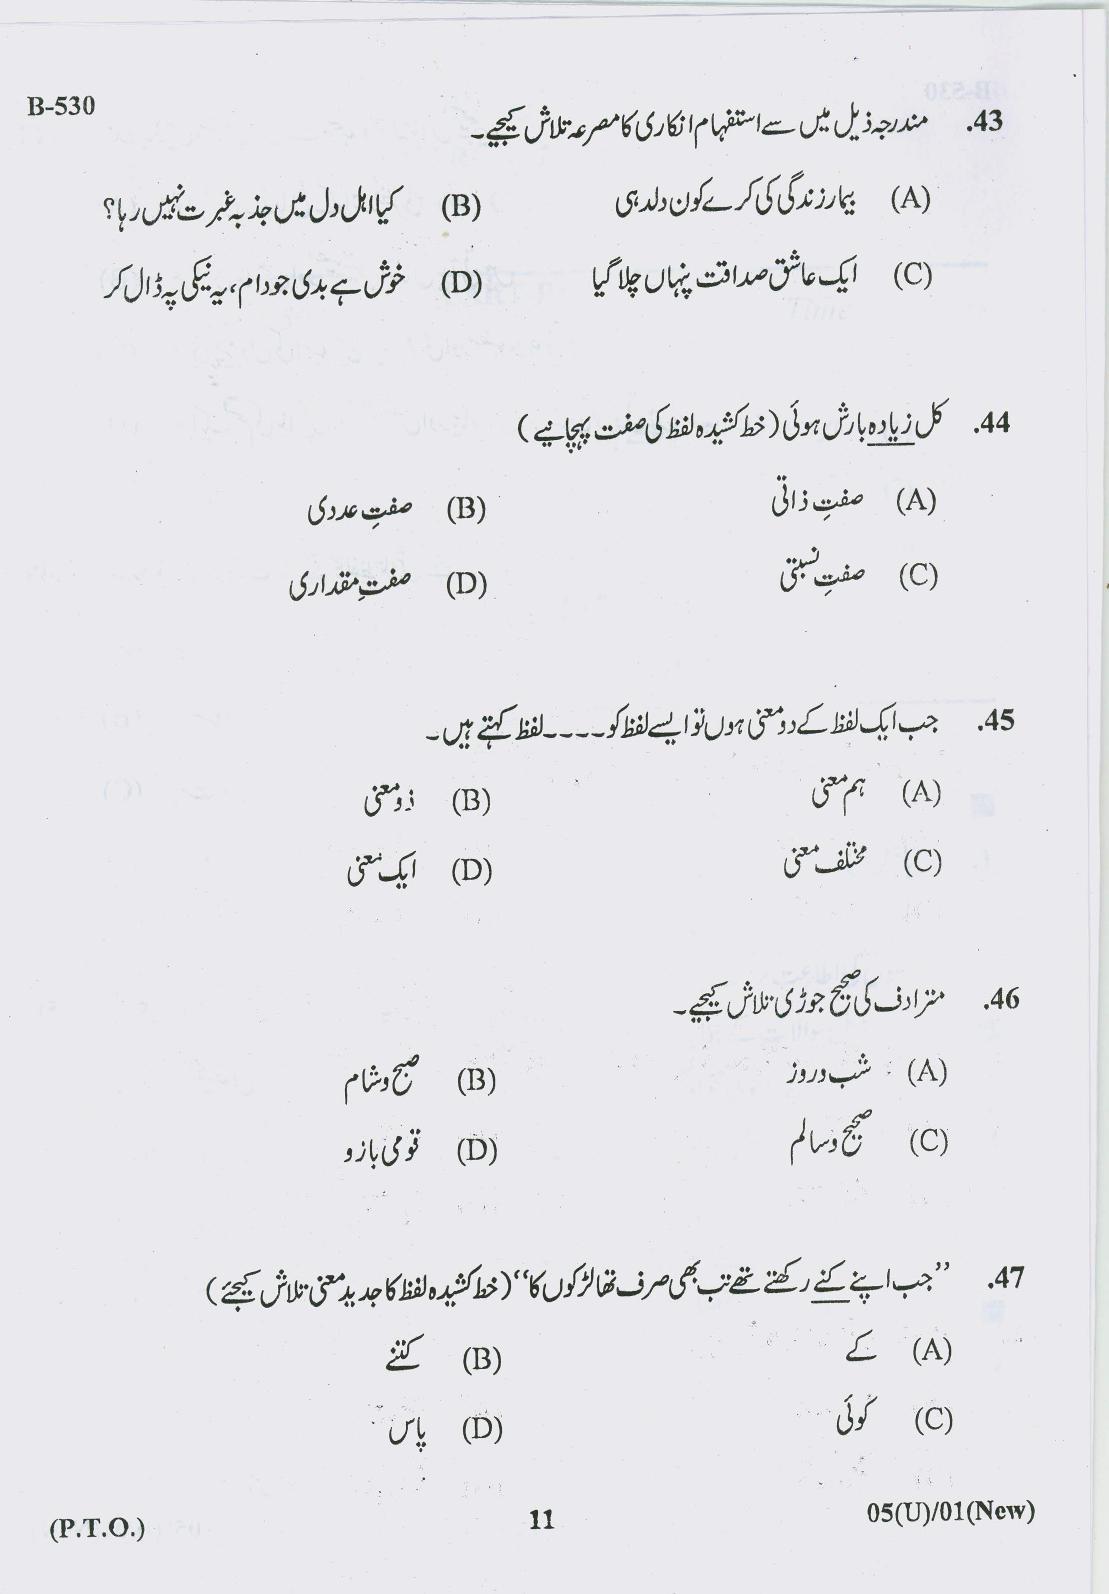 B-530
43. مندرجہ ذیل میں سے استفہام انکاری کا مصرعہ تلاش کیجیے۔
(A) بیمار زندگی کی کرے کون دلدہی (B) کیا اہل دل میں جذبہ غیرت نہیں رہا؟
(C) ایک عاشق صداقت پنہاں چلا گیا (D) خوش ہے بدی جو دام، یہ نیکی پہ ڈال کر
44. کل زیادہ بارش ہوئی (خط کشیدہ لفظ کی صفت پہچانیے)
(A) صفتِ ذاتی (B) صفتِ عددی
(C) صفتِ نسبتی (D) صفتِ مقداری
45. جب ایک لفظ کے دو معنی ہوں تو ایسے لفظ کو ۔۔۔۔ لفظ کہتے ہیں۔
(A) ہم معنی (B) ذو معنی
(C) مختلف معنی (D) ایک معنی
46. مترادف کی صحیح جوڑی تلاش کیجیے۔
(A) شب و روز (B) صبح و شام
(C) صحیح و سالم (D) قومی بازو
47. ’’جب اپنے کنے رکھتے تھے تب بھی صرف تھا لڑکوں کا‘‘ (خط کشیدہ لفظ کا جدید معنی تلاش کیجئے)
(A) کے (B) کتنے
(C) کوئی (D) پاس
(P.T.O.) 11 05(U)/01(New)